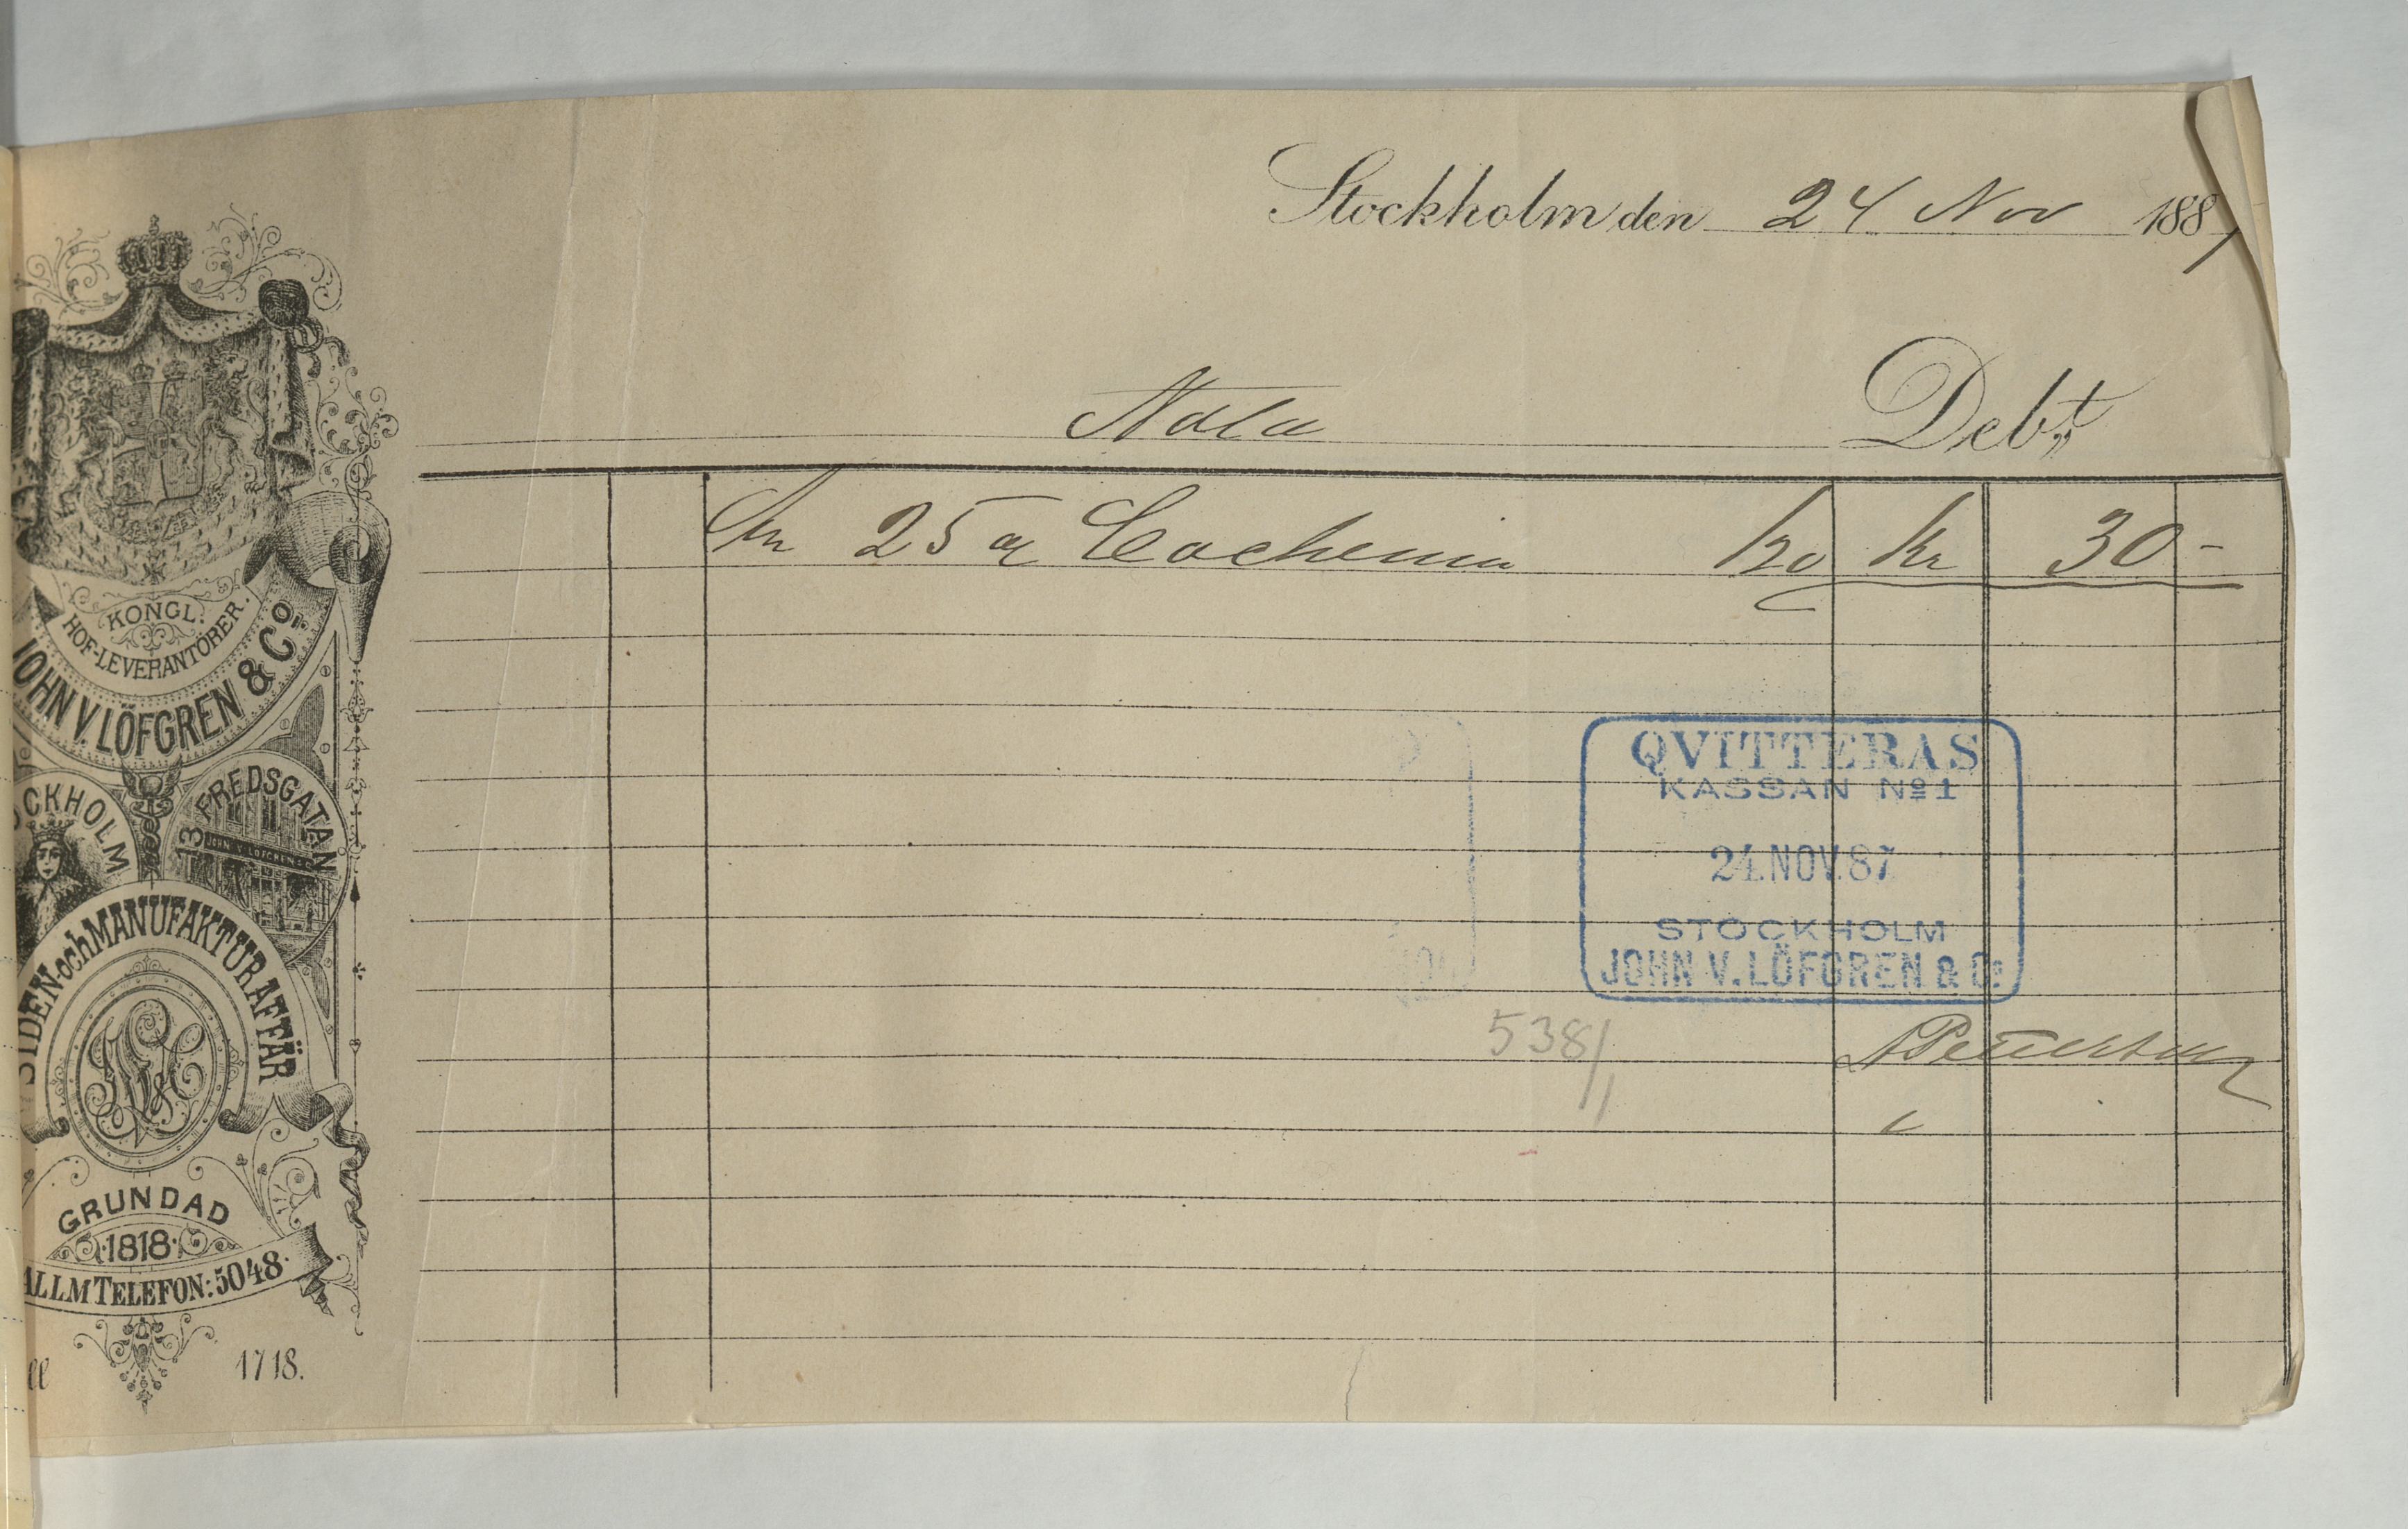 Stockholm den 24 Nov 1887
Nota Debt
An 25 al Cachemir 120 Kr 30 -
KONGL.
HOF-LEVERANTÖRER.
JOHN V. LÖFGREN & Co.
STOCKHOLM
3 FREDSGATAN
JOHN V. LÖFGREN & Co
SIDEN- och MANUFAKTURAFFÄR
GRUNDAD
1818
ALLM TELEFON: 5048
1718.
QVITTERAS
KASSAN No 1
24.NOV.87
STOCKHOLM
JOHN V. LÖFGREN & Co
538/1
A Pettersson